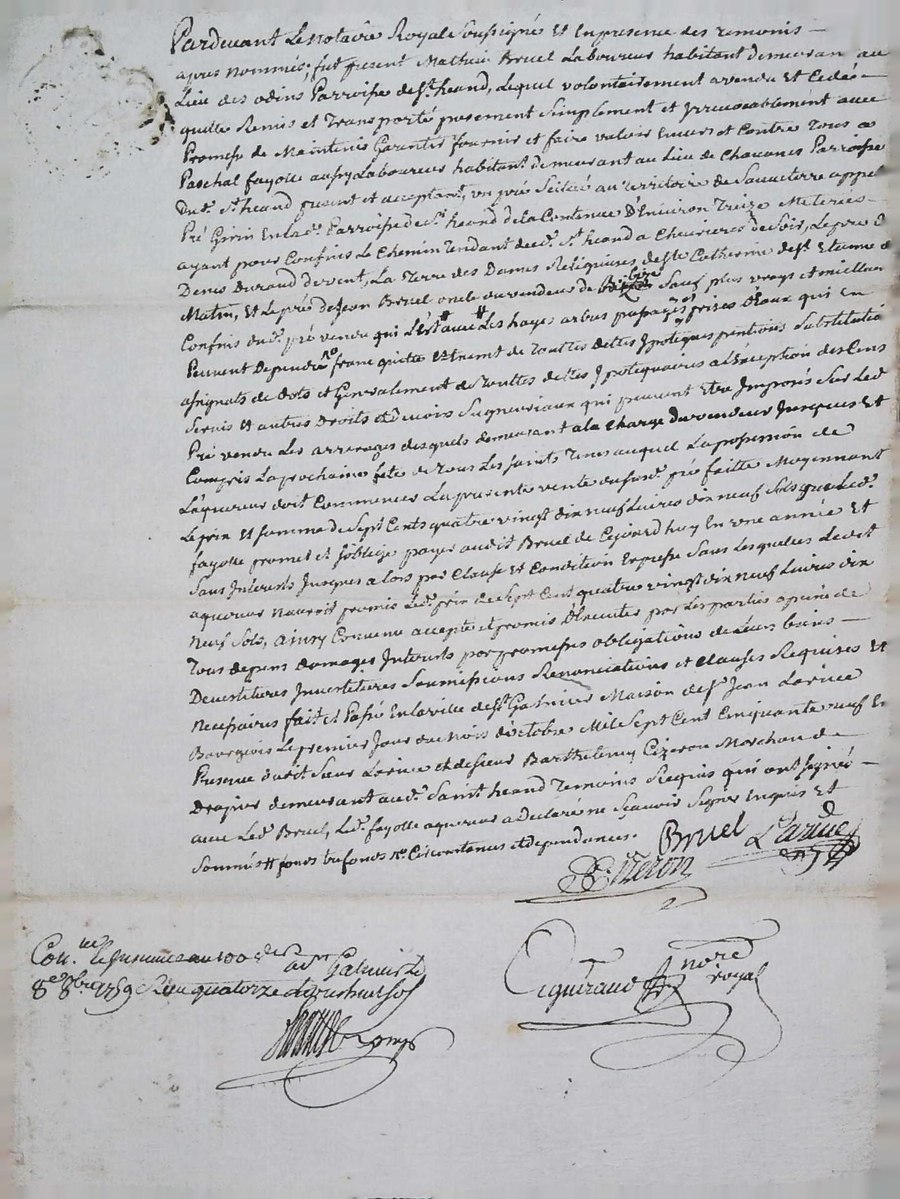 Pardevant Le notaire Royale Soussigné Et En presence des temoins
apres nommés, fut present Mathieu Bruel Laboureur habitant demeurant au
Lieu des odins Parroisse de St. heand, Lequel volontairement a vendu Et Cedé
quitté Remis et Transporté purement Simplement et Yrrevocablement avec
Promesse de Maintenir Garantir fournir et faire valoir Envers et Contre Tous a
Paschal fayolle aussy Laboureur habitant demeurant au Lieu de Chavanes Parroisse
Dud. St. heand present et acceptant, un pré Scitué au Territoire de Sauveterre appellé
Pré Gorin En lad. Parroisse de St. heand de la Contenue D'Environ Treize Meterées
ayant pour Confins Le Chemin Tendant de ed. St. heand a Chevrieres de Soir, Le pré de
Denis Durand de vent, La Terre des Dames Religieuses de Ste. Catherine de St. Etienne de
Matin, Et Le pré de Jean Bruel oncle du vendeur de bize Sauf plus vrays et meilleurs
Confins dud. pré vendu qui L'Est avec Les hayes arbres passages prises D'Eaux qui En
Peuvent Dependre franc quitte Et Exempt de Touttes dettes Ypoteques pentions Substitutions
asignats de dots et Generalement de Touttes dettes Ypotequaires a L'Exception des Cens
Servis Et autres Droits et Devoirs Seigneuriaux qui peuvent Etre Imposés Sur Led.
Pré vendu Les arrerages desquels demeurant a la Charge du vendeur Jusques Et
Compris La prochaine fete de Tous Les Saints Tems auquel La possession de
L'aquereur doit Commencer La presente vente dud. pré faitte Moyennant
Le prix et Somme de Sept Cents quatre vingt dix neuf Livres dix neuf Sols que Led.
fayolle promet et s'oblige payer audit Bruel de Cejourd'huy En une année Et
Sans Interests Jusques a Lors par Clause Et Condition Expresse Sans Lesquelles Ledit
aquereur n'auroit promis Led. prix de Sept Cent quatre vingt dix neuf Livres dix
neuf Sols, ainsy Convenu accepté et promis D'Executer par Les parties a peine de
Tous depens domages Interests par promesses obligations de Leurs biens
Devestitures Investitures Soumissions Renonciations et Clauses Requises Et
Necessaires fait et Passé En la ville de St. Galmier Maison de Sr. Jean Larive
Bourgeois Le premier Jour du Mois d'octobre Mil Sept Cent Cinquante neuf En
Presence dudit Sieur Larive et de Sieur Barthelemy Cizeron Marchan de
Drapier demeurant aud. Saint heand Temoins Requis qui ont Signé
avec Led. Bruel, Led. fayolle aquereur a Declaré ne Sçavoir Signer Enquis Et
Sommés fonds trefonds Circonstances et dependances.
Bruel
Larive
B. Cizeron
Con.
a St. Galmier Le
8e 8bre 1759 quatorze Livres huit Sols
nore
royal